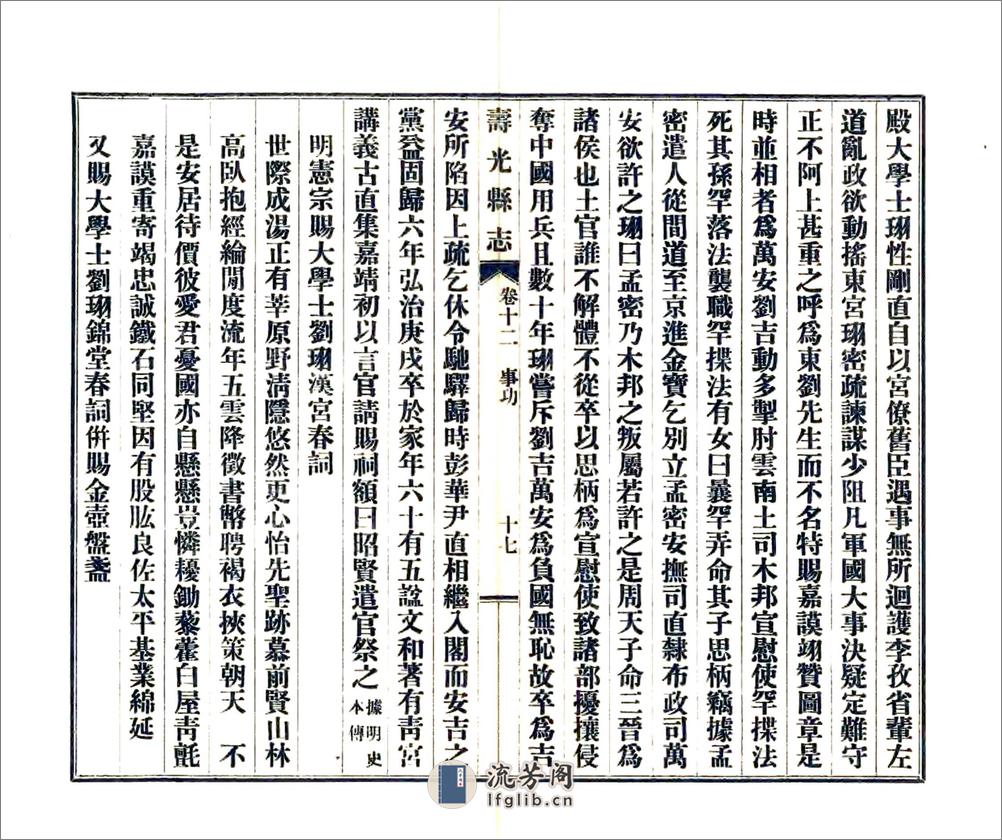 殿大學士珝性剛直自以宮僚舊臣遇事無所迴護李孜省輩左
道亂政欲動搖東宮珝密疏諫謀少阻凡軍國大事決疑定難守
正不阿上甚重之呼爲東劉先生而不名特賜嘉謨翊贊圖章是
時並相者爲萬安劉吉動多掣肘雲南土司木邦宣慰使罕揲法
死其孫罕落法襲職罕揲法有女曰曩罕弄命其子思柄竊據孟
密遣人從間道至京進金寶乞別立孟密安撫司直隸布政司萬
安欲許之珝曰孟密乃木邦之叛屬若許之是周天子命三晉爲
諸侯也土官誰不解體不從卒以思柄爲宣慰使致諸部擾攘侵
奪中國用兵且數十年珝嘗斥劉吉萬安爲負國無恥故卒爲吉
壽光縣志 卷十二 事功 十七
安所陷因上疏乞休令馳驛歸時彭華尹直相繼入閣而安吉之
黨益固歸六年弘治庚戌卒於家年六十有五諡文和著有靑宮
講義古直集嘉靖初以言官請賜祠額曰昭賢遣官祭之據明史本傳
明憲宗賜大學士劉珝漢宮春詞
世際成湯正有莘原野淸隱悠然更心怡先聖跡慕前賢山林
高臥抱經綸閒度流年五雲降徵書幣聘褐衣挾策朝天 不
是安居待價彼愛君憂國亦自懸懸豈憐耰鋤藜藿白屋靑氈
嘉謨重寄竭忠誠鐵石同堅因有股肱良佐太平基業綿延
又賜大學士劉珝錦堂春詞倂賜金壺盤盞
流芳阁
lfglib.cn